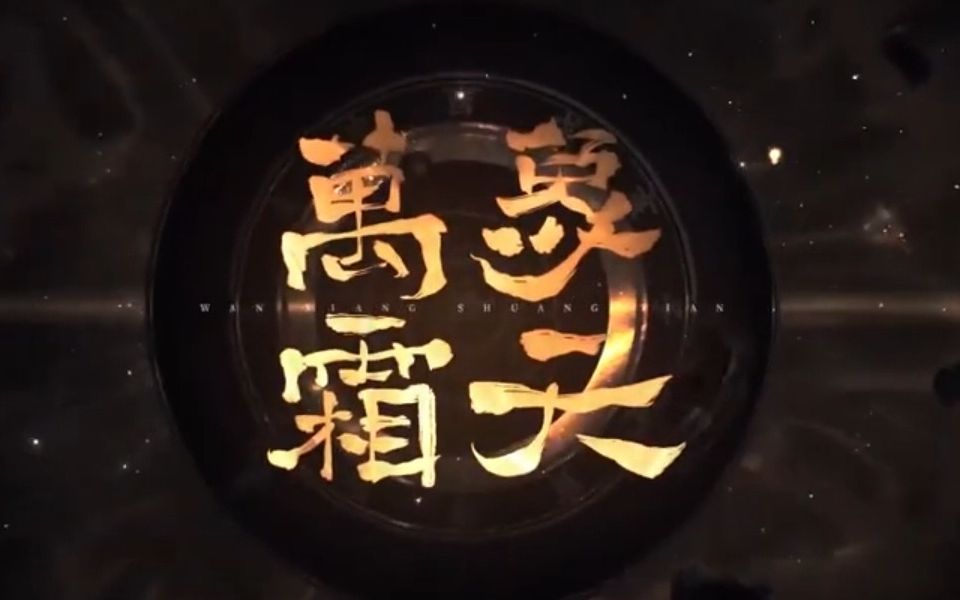 萬象
WAN XIANG SHUANG TIAN
霜天